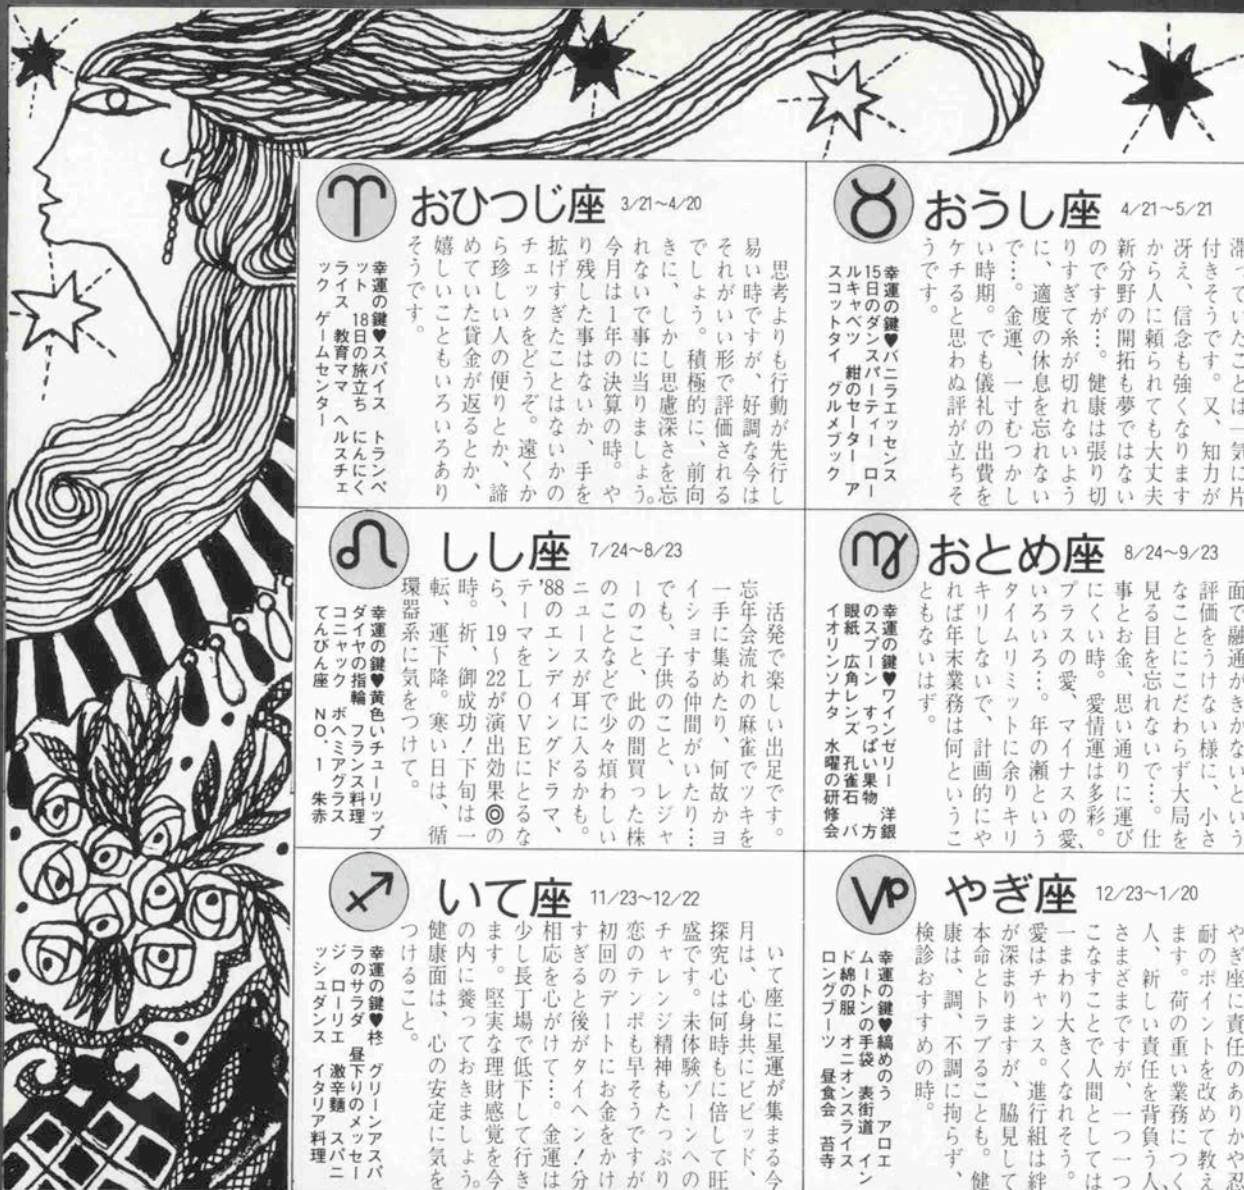 おひつじ座 3/21~4/20
思考よりも行動が先行し
易い時ですが、好調な今は
それがいい形で評価される
でしょう。積極的に、前向
きに、しかし思慮深さを忘
れないで事に当りましょう。
今月は1年の決算の時。や
り残した事はないか、手を
拡げすぎたことはないかの
チェックをどうぞ。遠くか
ら珍しい人の便りとか、諦
めていた貸金が返るとか、
嬉しいこともいろいろあり
そうです。
幸運の鍵♥スパイス トランペ
ット 18日の旅立ち にんにく
ライス 教育ママ ヘルスチェ
ック ゲームセンター
おうし座 4/21~5/21
滞っていたことは一気に片
付きそうです。又、知力が
冴え、信念も強くなります
から人に頼られても大丈夫
新分野の開拓も夢ではない
のですが…。健康は張り切
りすぎて糸が切れないよう
に、適度の休息を忘れない
で…。金運、一寸むつかし
い時期。でも儀礼の出費を
ケチると思わぬ評が立ちそ
うです。
幸運の鍵♥バニラエッセンス
15日のダンスパーティー ロー
ルキャベツ 紺のセーター ア
スコットタイ グルメブック
しし座 7/24~8/23
活発で楽しい出足です。
忘年会流れの麻雀でツキを
一手に集めたり、何故かヨ
イショする仲間がいたり…
でも、子供のこと、レジャ
ーのこと、此の間買った株
のことなどで少々煩わしい
ニュースが耳に入るかも。
'88のエンディングドラマ、
テーマをLOVEにとるな
ら、19~22が演出効果◎の
時。祈、御成功!下旬は一
転、運下降。寒い日は、循
環器系に気をつけて。
幸運の鍵♥黄色いチューリップ
ダイヤの指輪 フランス料理
コニャック ボヘミアグラス
てんびん座 NO.1 朱赤
おとめ座 8/24~9/23
面で融通がきかないという
評価をうけない様に、小さ
なことにこだわらず大局を
見る目を忘れないで…。仕
事とお金、思い通りに運び
にくい時。愛情運は多彩。
プラスの愛、マイナスの愛、
いろいろ…。年の瀬という
タイムリミットに余りキリ
キリしないで、計画的にや
れば年末業務は何というこ
ともないはず。
幸運の鍵♥ワインゼリー 洋銀
のスプーン すっぱい果物 方
眼紙 広角レンズ 孔雀石 バ
イオリンソナタ 水曜の研修会
いて座 11/23~12/22
いて座に星運が集まる今
月は、心身共にビビッド、
探究心は何時もに倍して旺
盛です。未体験ゾーンへの
チャレンジ精神もたっぷり
恋のテンポも早そうですが
初回のデートにお金をかけ
すぎると後がタイヘン!分
相応を心がけて…。金運は
少し長丁場で低下して行き
ます。堅実な理財感覚を今
の内に養っておきましょう。
健康面は、心の安定に気を
つけること。
幸運の鍵♥柊 グリーンアスパ
ラのサラダ 昼下りのメッセー
ジ ローリエ 激辛麺 スパニ
ッシュダンス イタリア料理
やぎ座 12/23~1/20
やぎ座に責任のありかや忍
耐のポイントを改めて教え
ます。荷の重い業務につく
人、新しい責任を背負う人、
さまざまですが、一つ一つ
こなすことで人間としては
一まわり大きくなれそう。
愛はチャンス。進行組は絆
が深まりますが、脇見して
本命とトラブることも。健
康は、調、不調に拘らず、
検診おすすめの時。
幸運の鍵♥縞めのう アロエ
ムートンの手袋 表街道 イン
ド綿の服 オニオンスライス
ロングブーツ 昼食会 苔寺